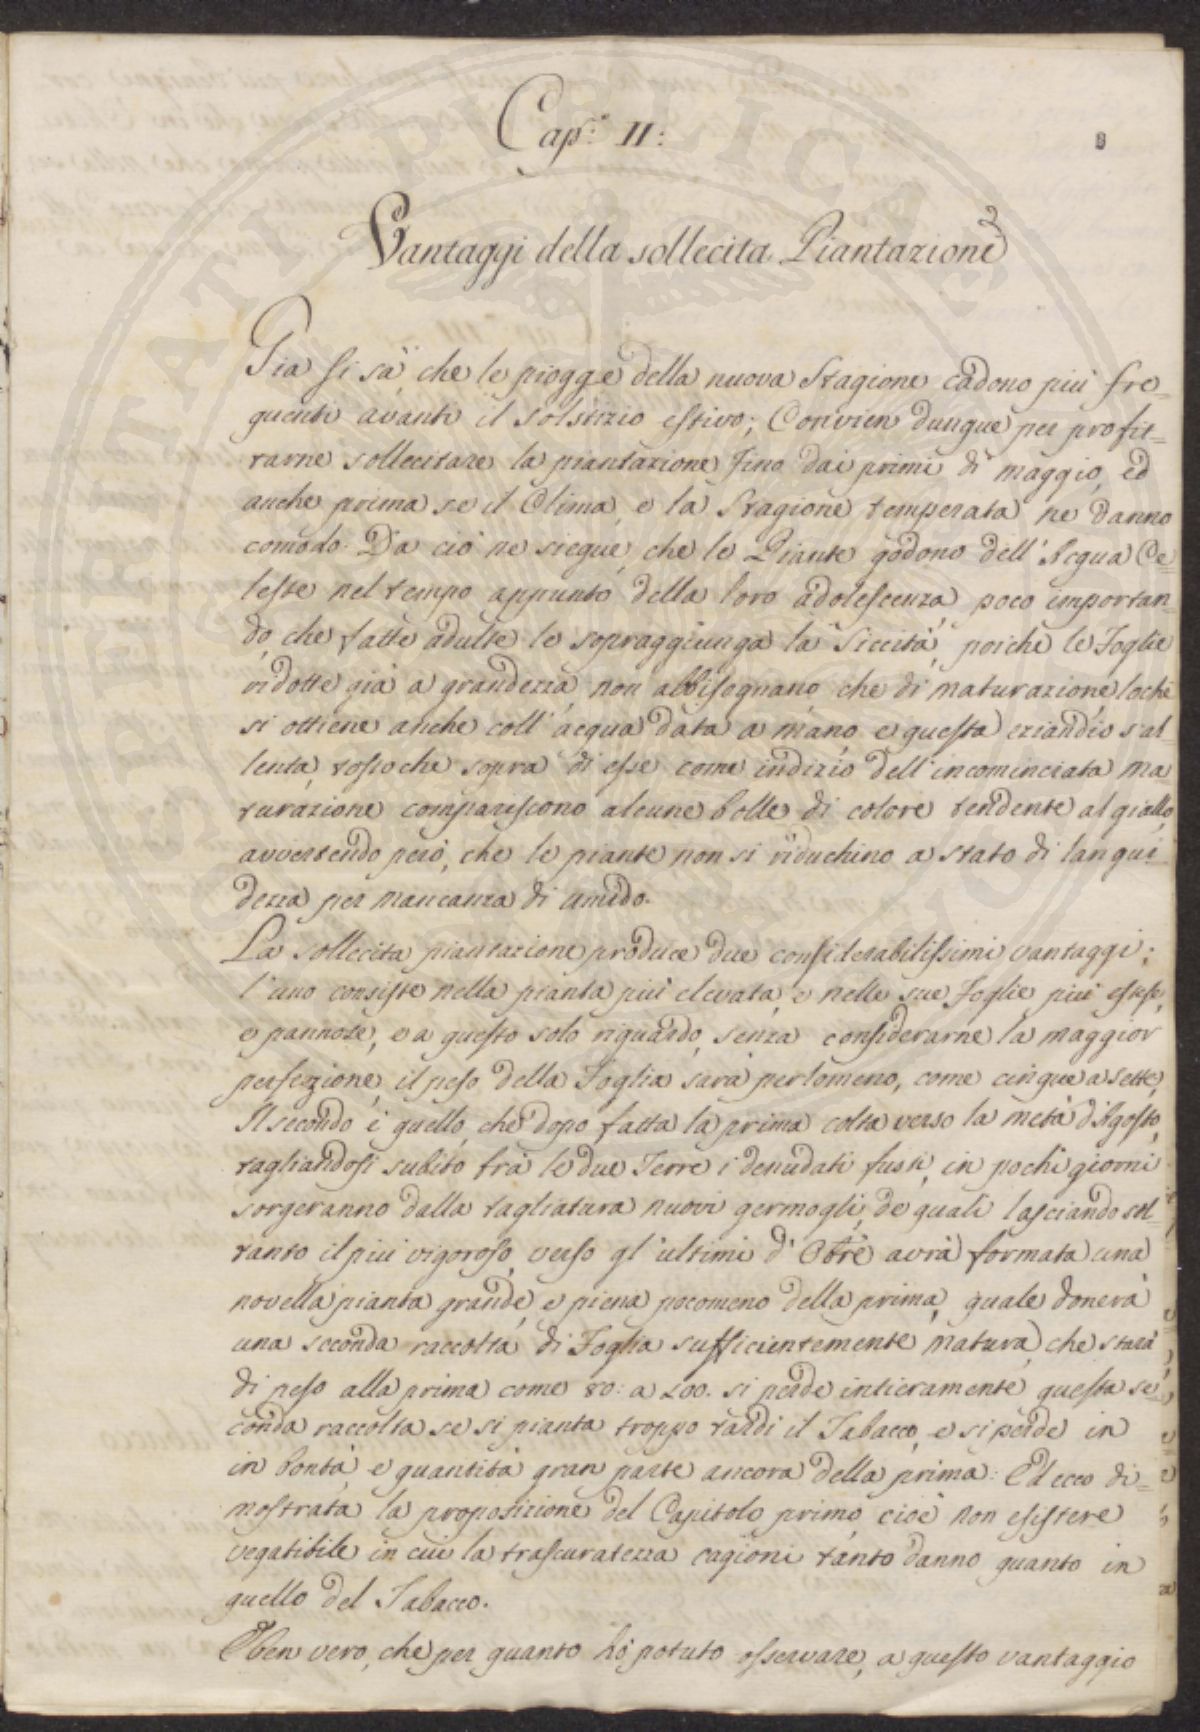 Cap.º II:
8
Vantaggi della sollecita Piantazione
Gia si sà, che le piogge della nuova Stagione cadono piú fre=
quenti avanti il solstizio estivo; Convien dunque per profit=
tarne sollecitare la piantazione fino dai primi di maggio, ed
anche prima se il Clima, e la Stagione temperata ne danno
comodo. Da ciò ne siegue, che le Piante godono dell'Acqua Ce=
leste nel tempo appunto della loro adolescenza, poco importan=
do, che fatte adulte le sopraggiunga la Siccità, poiche le Foglie
ridotte già a grandezza non abbisognano che di maturazione loche
si ottiene anche coll'acqua data a mano, e questa eziandio s'al=
lenta, tostoche sopra di esse come indizio dell'incominciata ma
turazione compariscono alcune bolle di colore tendente al giallo,
avvertendo però, che le piante non si riduchino a stato di langui=
dezza per mancanza di umido.
La sollecita piantazione produce due considerabilissimi vantaggi;
l'uno consiste nella pianta più elevata, e nelle sue Foglie piú estese,
e pannose, e a questo solo riguardo, senza considerarne la maggior
perfezione, il peso della Foglia sarà perlomeno, come cinque a sette,
Il secondo è quello, che dopo fatta la prima colta verso la metà d'Agosto,
tagliandosi subito frà le due Terre i denudati fusti, in pochi giorni
sorgeranno dalla tagliatura nuovi germogli, de quali lasciando sol=
tanto il piú vigoroso, verso gl'ultimi d'Obre avrà formata una
novella pianta grande, e piena pocomeno della prima, quale donerà
una seconda raccolta di Foglia sufficientemente matura, che starà
di peso alla prima come 80: a 200. si perde intieramente questa se=
conda raccolta se si pianta troppo tardi il Tabacco, e si perde in
in bontà e quantità gran parte ancora della prima: Ed ecco di=
mostrata la proposizione del Capitolo primo, cioè non esistere
vegatibile in cui la trascuratezza cagioni tanto danno quanto in
quello del Tabacco.
E ben vero, che per quanto hò potuto osservare, a questo vantaggio